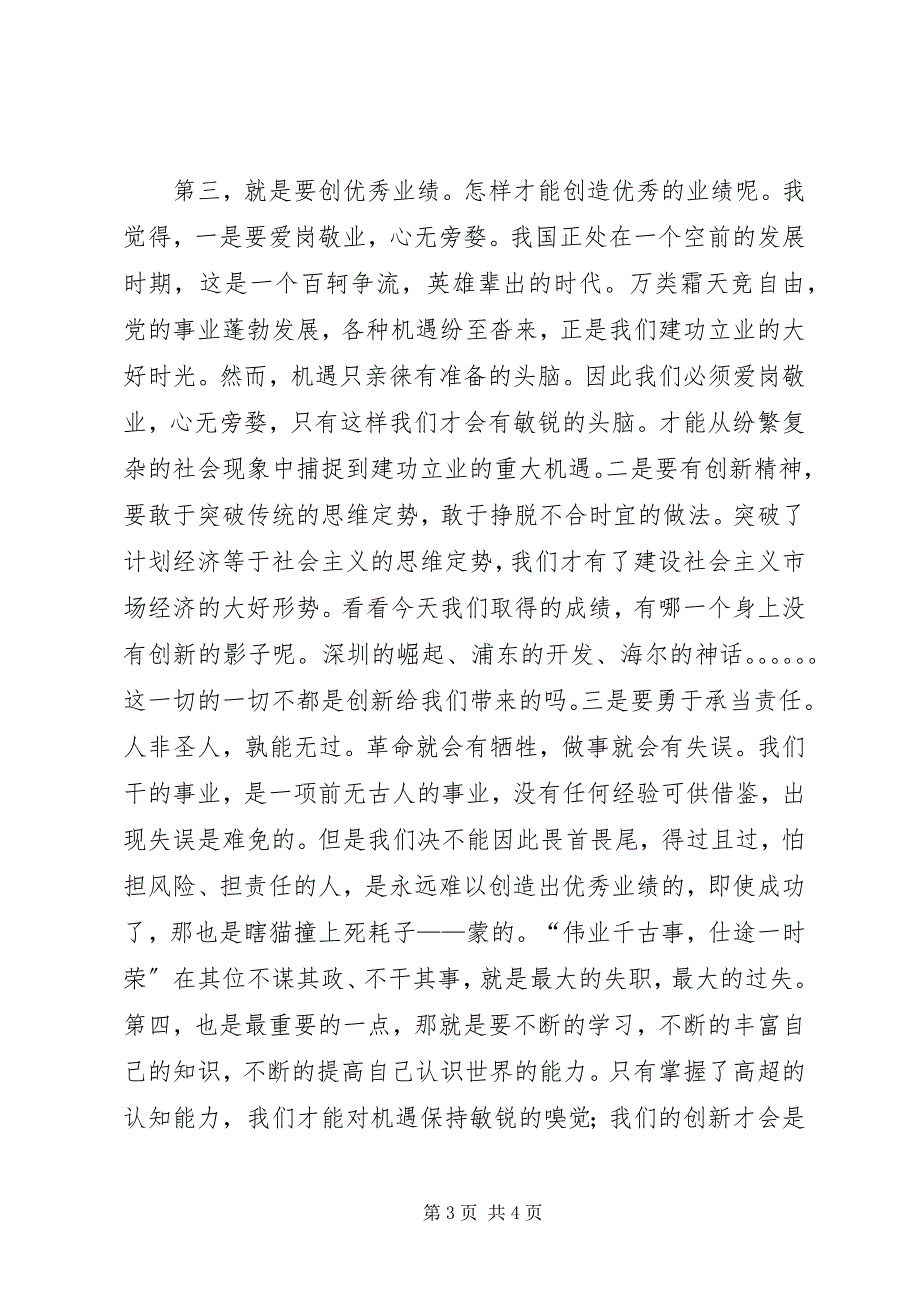 第三，就是要创优秀业绩。怎样才能创造优秀的业绩呢。我
觉得，一是要爱岗敬业，心无旁婺。我国正处在一个空前的发展
时期，这是一个百轲争流，英雄辈出的时代。万类霜天竞自由，
党的事业蓬勃发展，各种机遇纷至沓来，正是我们建功立业的大
好时光。然而，机遇只亲徕有准备的头脑。因此我们必须爱岗敬
业，心无旁婺，只有这样我们才会有敏锐的头脑。才能从纷繁复
杂的社会现象中捕捉到建功立业的重大机遇。二是要有创新精神，
要敢于突破传统的思维定势，敢于挣脱不合时宜的做法。突破了
计划经济等于社会主义的思维定势，我们才有了建设社会主义市
场经济的大好形势。看看今天我们取得的成绩，有哪一个身上没
有创新的影子呢。深圳的崛起、浦东的开发、海尔的神话。。。。。。
这一切的一切不都是创新给我们带来的吗。三是要勇于承当责任。
人非圣人，孰能无过。革命就会有牺牲，做事就会有失误。我们
干的事业，是一项前无古人的事业，没有任何经验可供借鉴，出
现失误是难免的。但是我们决不能因此畏首畏尾，得过且过，怕
担风险、担责任的人，是永远难以创造出优秀业绩的，即使成功
了，那也是瞎猫撞上死耗子——蒙的。“伟业千古事，仕途一时
荣〞在其位不谋其政、不干其事，就是最大的失职，最大的过失。
第四，也是最重要的一点，那就是要不断的学习，不断的丰富自
己的知识，不断的提高自己认识世界的能力。只有掌握了高超的
认知能力，我们才能对机遇保持敏锐的嗅觉；我们的创新才会是
第 3 页 共 4 页